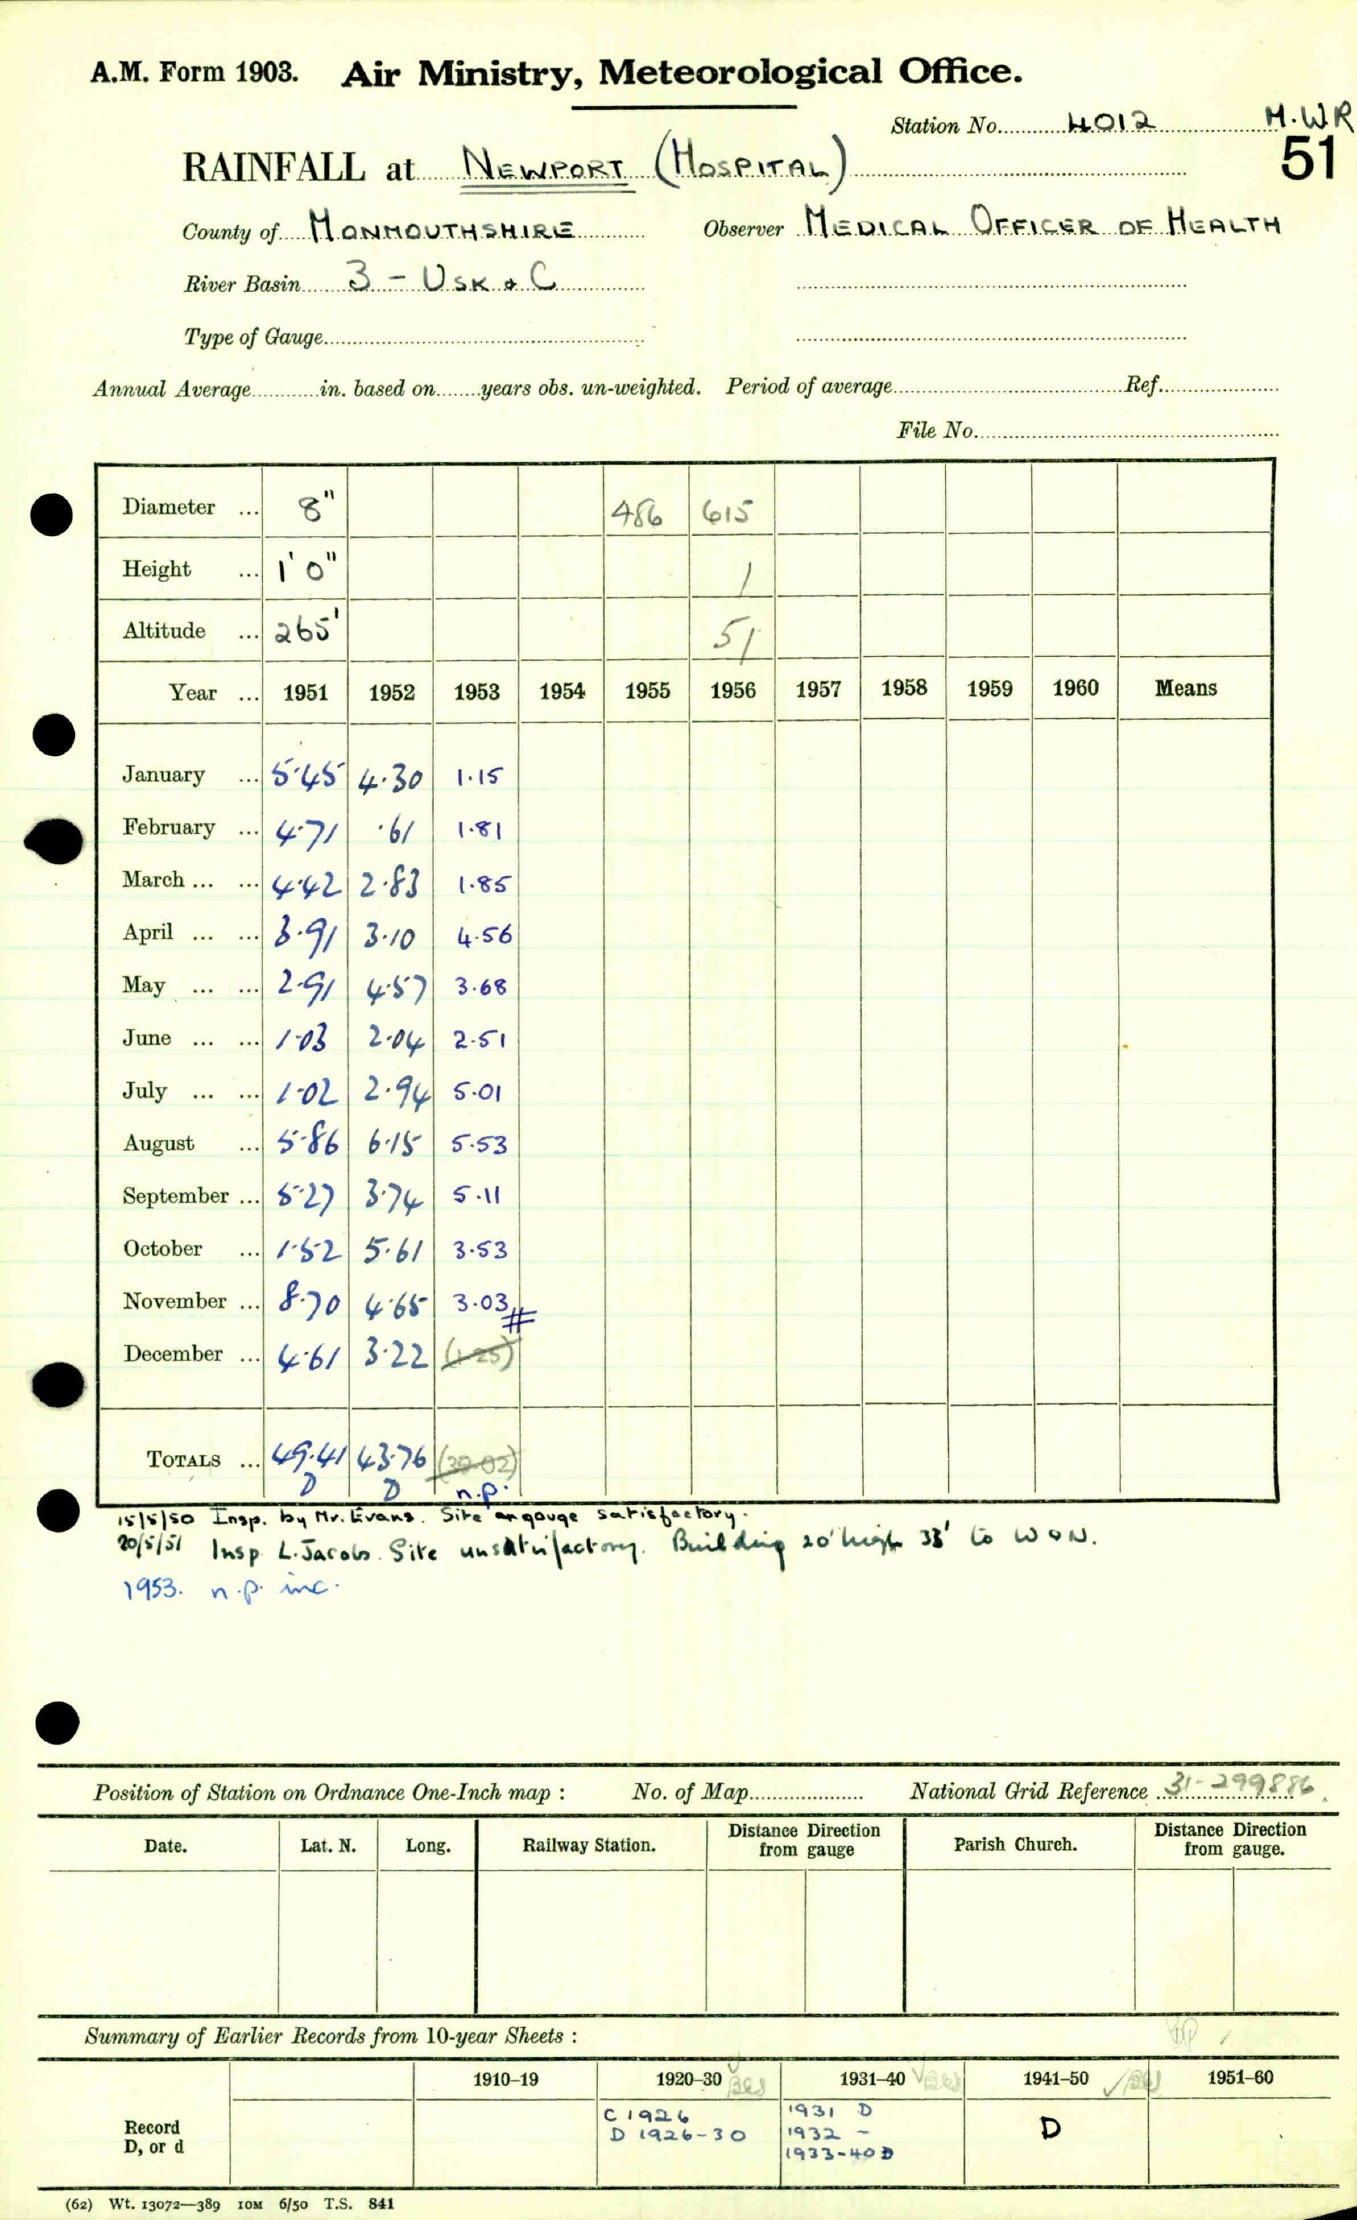 A.M. Form 1903. Air Ministry, Meteorological Office.
Station No. 4012 M.WR
51
RAINFALL at NEWPORT (HOSPITAL)
County of MONMOUTHSHIRE Observer MEDICAL OFFICER OF HEALTH
River Basin 3 - USK & C
Type of Gauge
Annual Average in. based on years obs. un-weighted. Period of average Ref.
File No.
Diameter ... 8" 486 615
Height ... 1' 0" 1
Altitude ... 265' 51
Year ... 1951 1952 1953 1954 1955 1956 1957 1958 1959 1960 Means
January ... 5.45 4.30 1.15
February ... 4.71 .61 1.81
March ... ... 4.42 2.83 1.85
April ... ... 3.91 3.10 4.56
May ... ... 2.91 4.57 3.68
June ... ... 1.03 2.04 2.51
July ... ... 1.02 2.94 5.01
August ... 5.86 6.15 5.53
September ... 5.27 3.74 5.11
October ... 1.52 5.61 3.53
November ... 8.70 4.65 3.03 #
December ... 4.61 3.22 (1.25)
TOTALS ... 49.41 43.76 (39.02)
D D n.p.
15/5/50 Insp. by Mr. Evans. Site & gauge satisfactory.
20/5/51 Insp L. Jacobs. Site unsatisfactory. Building 20' high 33' to W & N.
1953. n.p. inc.
Position of Station on Ordnance One-Inch map : No. of Map National Grid Reference 31-299886
Date. Lat. N. Long. Railway Station. Distance Direction from gauge Parish Church. Distance Direction from gauge.
Summary of Earlier Records from 10-year Sheets :
1910–19 1920–30 1931–40 1941–50 1951–60
Record D, or d
C 1926 1931 D D
D 1926-30 1932 -
1933-40 D
(62) Wt. 13072—389 10M 6/50 T.S. 841